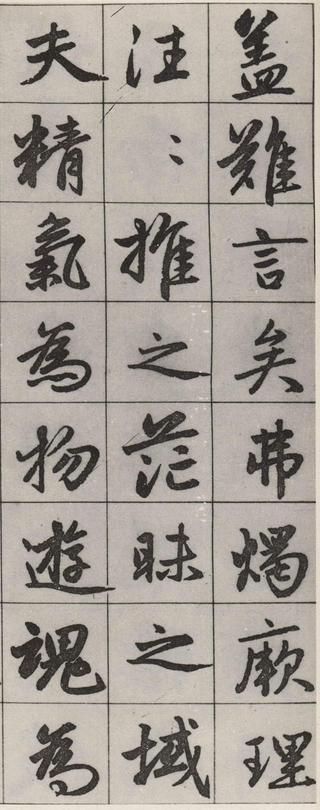 蓋難言矣弗燭厥理
汪〻推之茫昧之域
夫精氣為物遊魂為